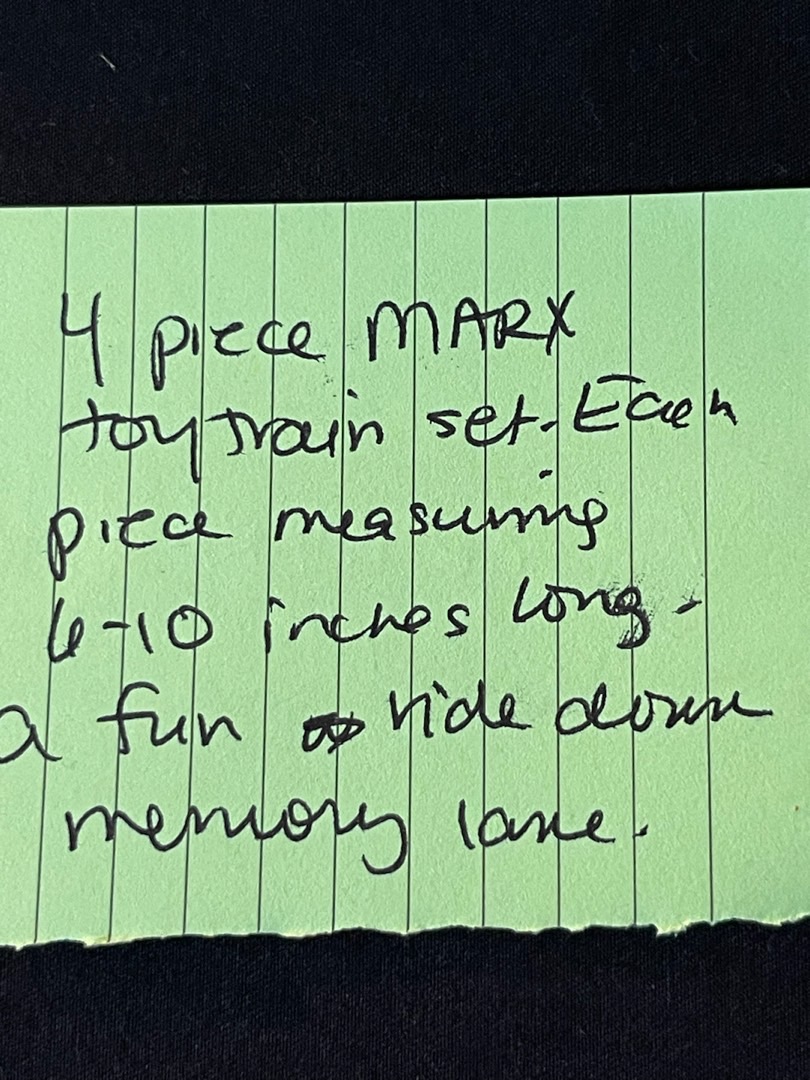 4 piece MARX
toy train set. Each
piece measuring
6-10 inches long.
a fun ride down
memory lane.